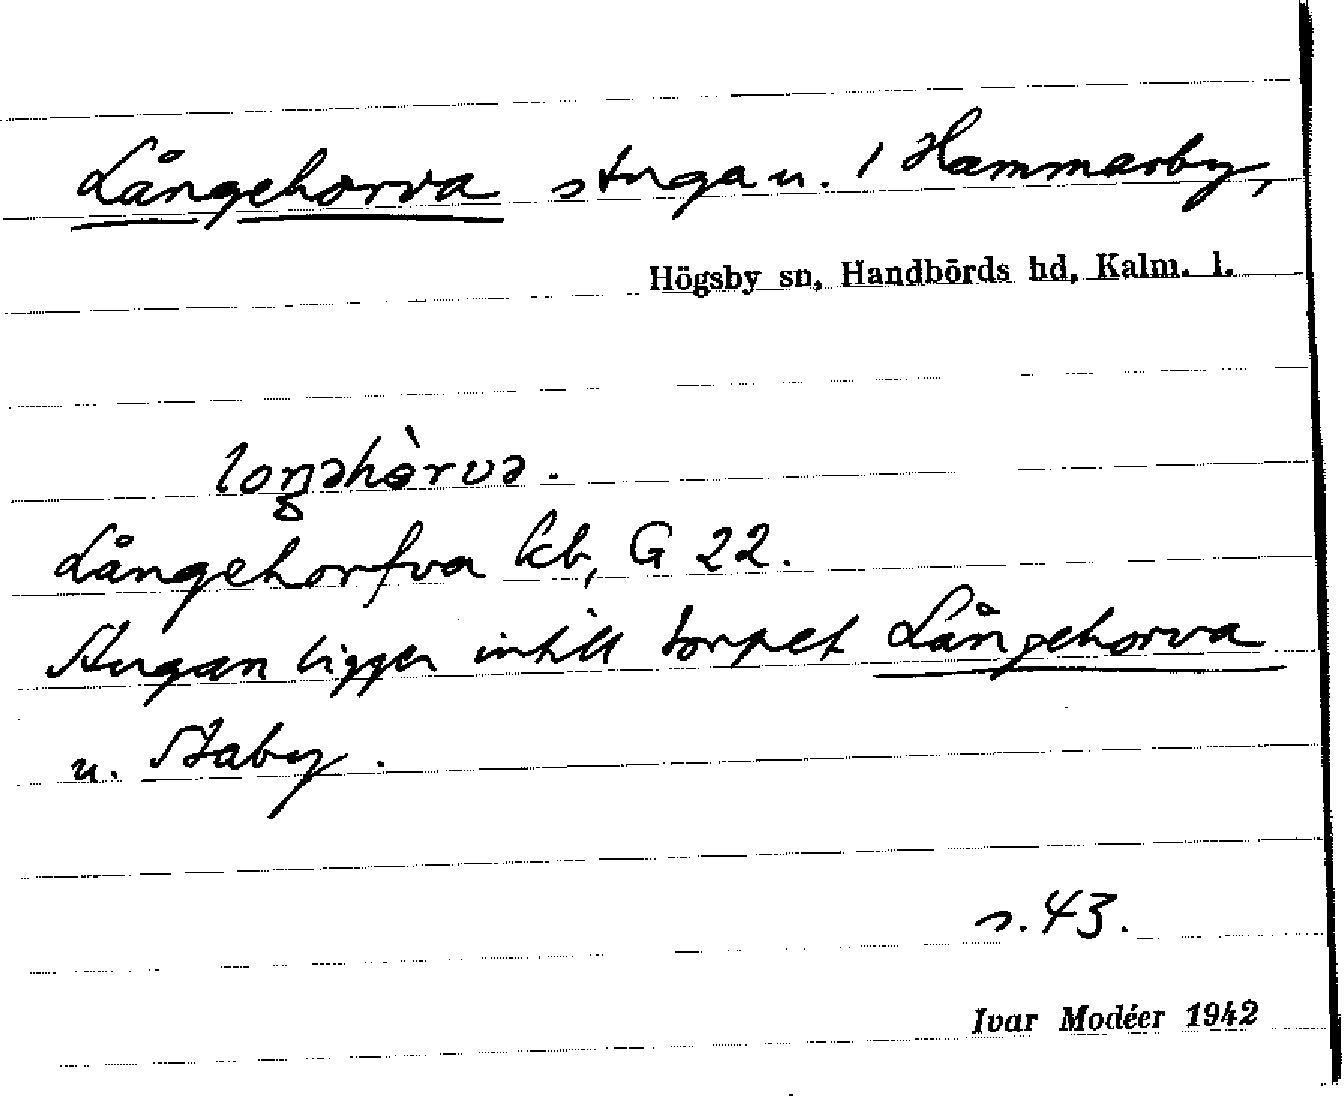 Långehorva stuga u. 1 Hammarby,
Högsby sn, Handbörds hd, Kalm. l.
loŋəhòrvə.
Långehorfva kb, G 22.
Stugan ligger intill torpet Långehorva
u. Staby.
s. 43.
Ivar Modéer 1942